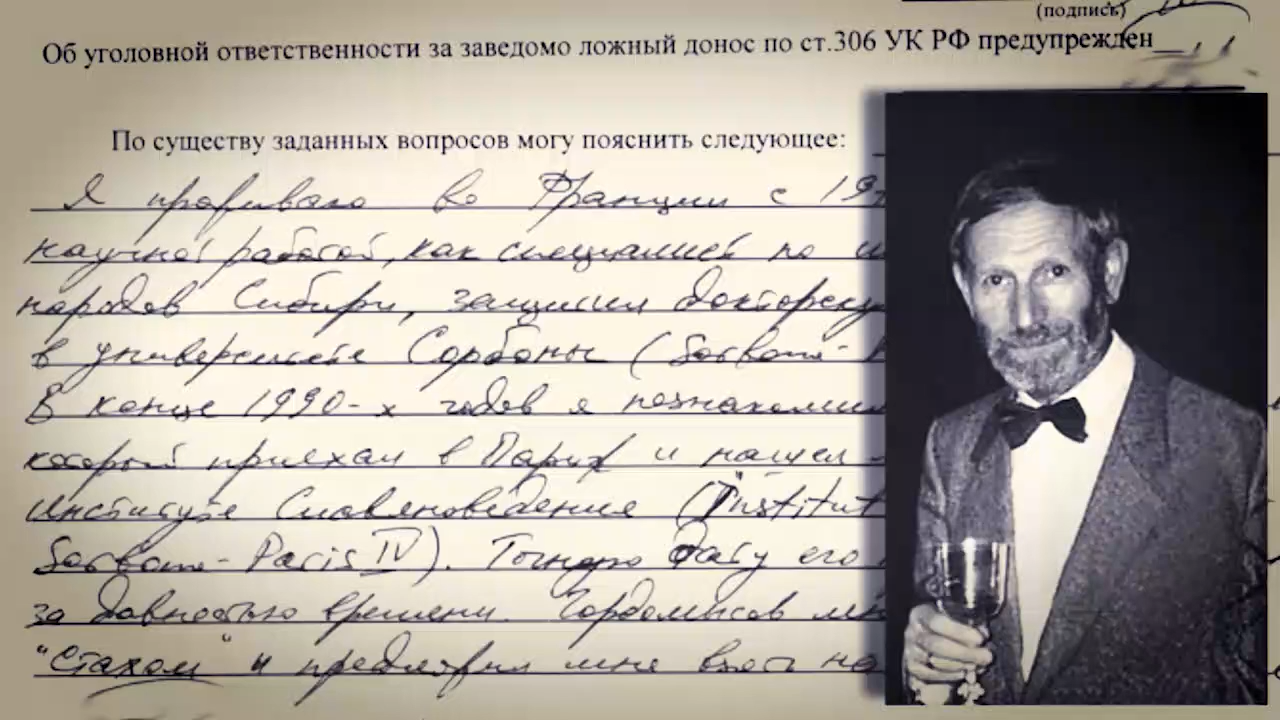 (подпись)
Об уголовной ответственности за заведомо ложный донос по ст.306 УК РФ предупрежден
По существу заданных вопросов могу пояснить следующее:
Я проживаю во Франции с 19
научной работой, как специалист по
народов Сибири, защитил докторскую
в университете Сорбоны (Sorbonne-
В конце 1990-х годов я познакомился
который приехал в Париж и нашел
Институте Славяноведения (Institut
Sorbonne-Paris IV). Точную дату его
за давностью времени.
"Стахом" и предложил мне взять на